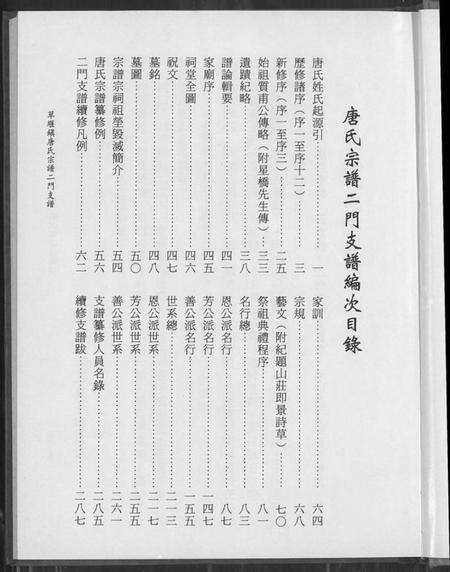 唐氏宗譜二門支譜編次目錄
唐氏姓氏起源引……一
歷修諸序（序一至序十二）……三
新修序（序一至序三）……二五
始祖質甫公傳略（附星橋先生傳）……三三
遺蹟紀略……三八
譜論輯要……四一
家廟序……四五
祠堂全圖……四六
祝文……四七
墓銘……四八
墓圖……五〇
宗譜宗祠祖塋毀滅簡介……五四
唐氏宗譜纂修例……五六
二門支譜續修凡例……六二
家訓……六四
宗規……六八
藝文（附紀題山莊即景詩草）……七〇
祭祖典禮程序……八一
名行總……八三
恩公派名行……八七
芳公派名行……一四七
善公派名行……一五五
世系總……二一三
恩公派世系……二一七
芳公派世系……二五五
善公派世系……二六一
支譜纂修人員名錄……二八五
續修支譜跋……二八七
草堰鎮唐氏宗譜二門支譜